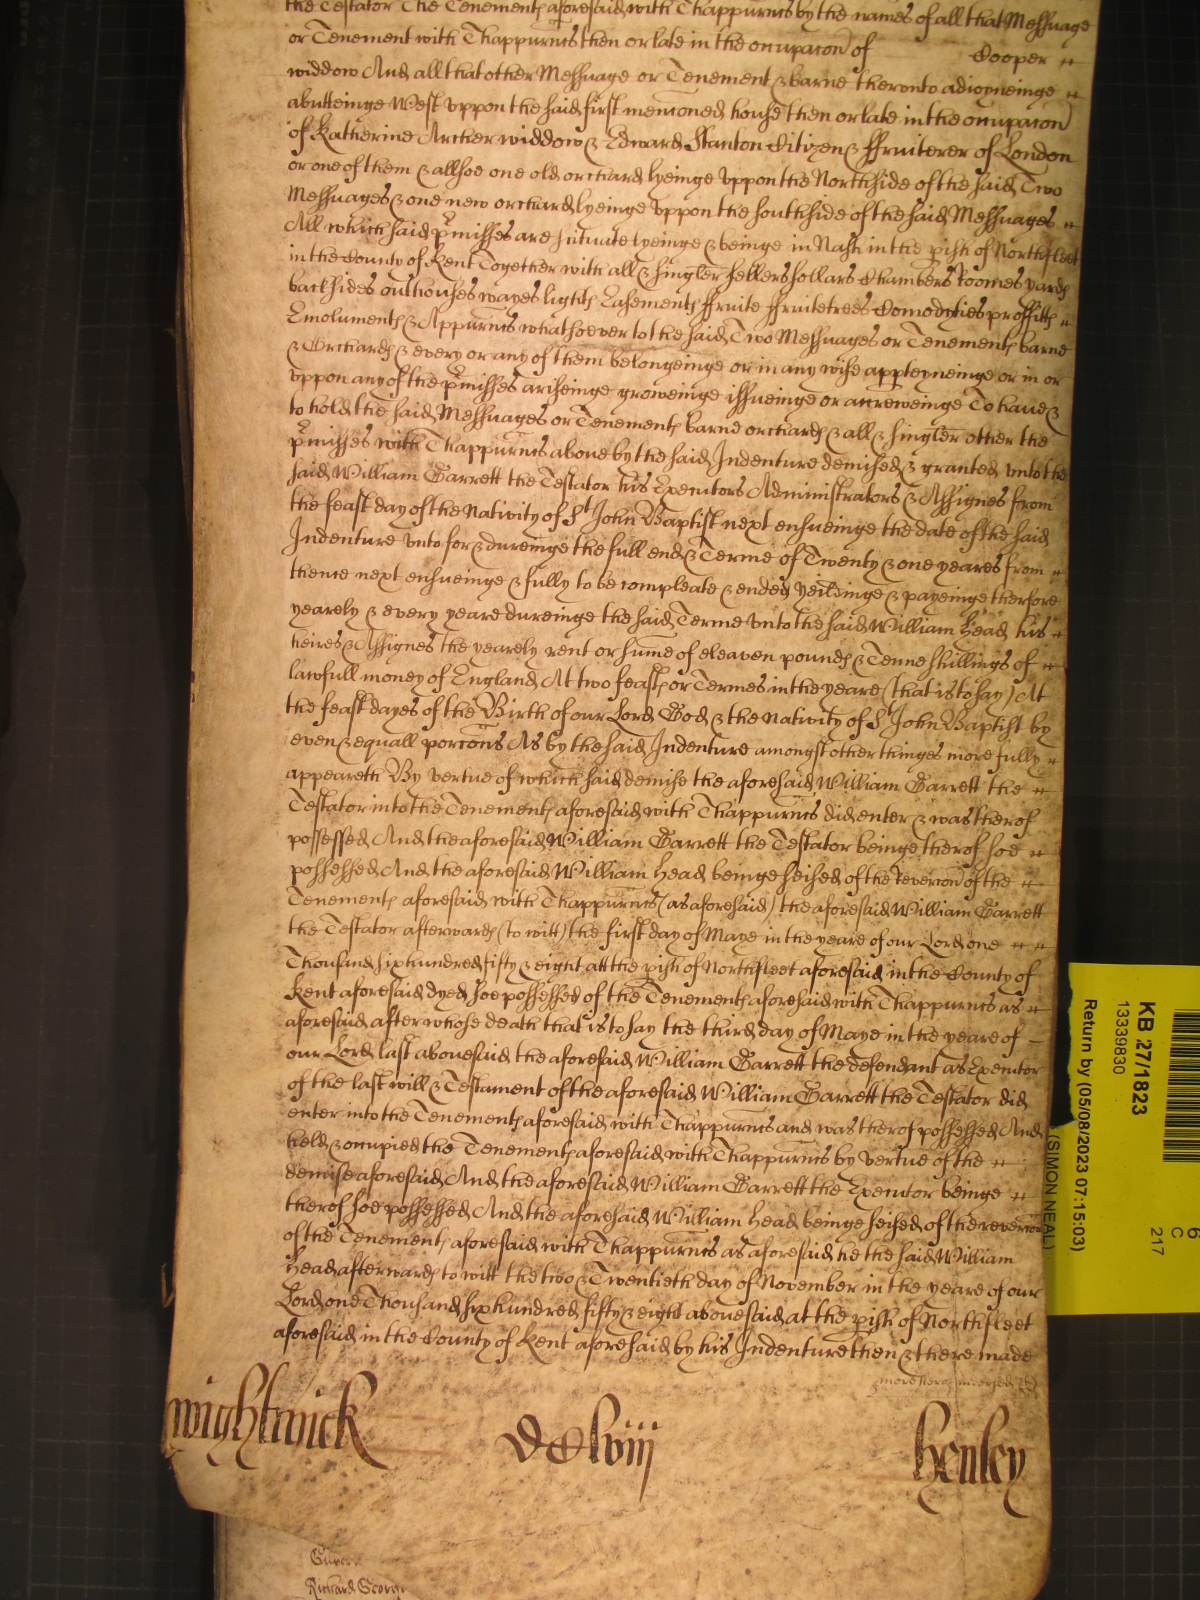 the Testator the Tenements aforesaid with Thappurtñts by the names of all that Messuage
or Tenement with Thappurtñts then or late in the occupacon of Cooper
widdow And all that other Messuage or Tenement & barne therunto adioyneinge
abutteinge West uppon the said first mencioned house then or late in the occupacon
of Katherine Archer widdow & Edward Stanton Citizen & ffruiterer of London
or one of them & allsoe one old orchard lyeinge uppon the Northside of the said Two
Messuages & one new orchard lyeinge uppon the southside of the said Messuages
All which said p̃misses are scituate lyeinge & beinge in Nash in the p̃ish of Northfleet
in the County of Kent Together with all & singler sellers sollars Chambers Roomes yards
backsides outhouses wayes lights Easements ffruite ffruitetrees Comodyties proffitts
Emoluments & Appurtñts whatsoever to the said Two Messuages or Tenements barne
& Orchards & every or any of them belongeinge or in any wise appteyneinge or in or
uppon any of the p̃misses ariseinge groweinge issueinge or accreweinge To have &
to hold the said Messuages or Tenements barne orchards & all & singler other the
p̃misses with Thappurtñts above by the said Indenture demised & granted unto the
said William Garrett the Testator his Executors Administrators & Assignes from
the feast day of the Nativity of St John Baptist next ensueinge the date of the said
Indenture unto for & dureinge the full end & Terme of Twenty & one yeares from
thence next ensueinge & fully to be compleate & ended yeildinge & payeinge therfore
yearely & every yeare dureinge the said Terme unto the said William Head his
heires & Assignes the yearely rent or sume of eleaven pounds & Tenne shillings of
lawfull money of England At two feasts or Termes in the yeare (that is to say) At
the feast dayes of the Birth of our Lord God & the Nativity of St John Baptist by
even & equall porcons As by the said Indenture amongst other thinges more fully
appeareth By vertue of which said demise the aforesaid William Garrett the
Testator into the Tenements aforesaid with Thappurtñts did enter & was therof
possessed And the aforesaid William Garrett the Testator beinge therof soe
possessed And the aforesaid William Head beinge seised of the Revercon of the
Tenements aforesaid with Thappurtñts (as aforesaid) the aforesaid William Garrett
the Testator afterwards (to witt) the first day of Maye in the yeare of our Lord one
Thousand six hundred fifty & eight att the p̃ish of Northfleet aforesaid in the County of
Kent aforesaid dyed soe possessed of the Tenements aforesaid with Thappurtñts as
aforesaid after whose death that is to say the third day of Maye in the yeare of
our Lord last abovesaid the aforesaid William Garrett the defendant as Executor
of the last will & Testament of the aforesaid William Garrett the Testator did
enter into the Tenements aforesaid with Thappurtñts and was therof possessed And
held & occupied the Tenements aforesaid with Thappurtñts by vertue of the
demise aforesaid And the aforesaid William Garrett the Executor beinge
therof soe possessed And the aforesaid William Head beinge seised of the revercon
of the Tenements aforesaid with Thappurtñts as aforesaid he the said William
Head afterwards to witt the two & Twentieth day of November in the yeare of our
Lord one Thousand six hundred fifty & eight abovesaid at the p̃ish of Northfleet
aforesaid in the County of Kent aforesaid by his Indenture then & there made
wightwick
Henley
Richard
KB 27/1823
13339830
Return by (05/08/2023 07:15:03)
(SIMON NEAL)
6
C
217